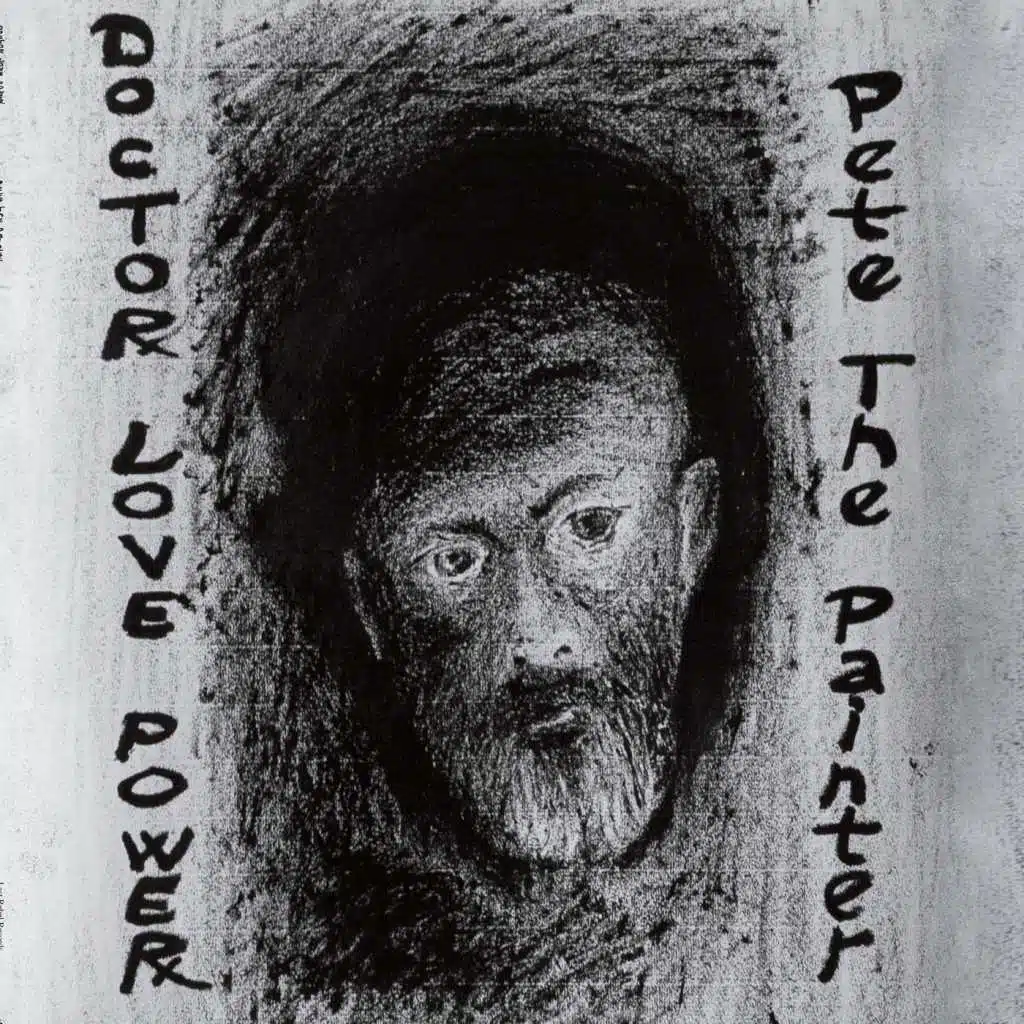 DOCTOR LOVE POWER
Pete The Painter